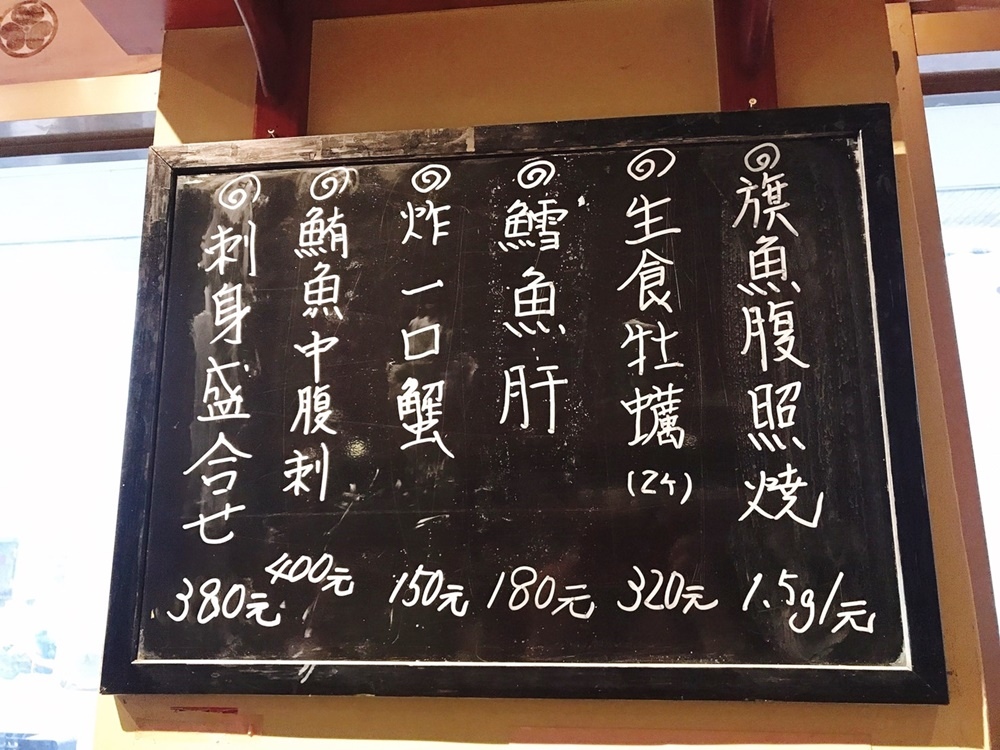 旗魚腹照燒
1.5g/元
生食牡蠣
(2个)
320元
鱈魚肝
180元
炸一口蟹
150元
鮪魚中腹刺
400元
刺身盛合せ
380元